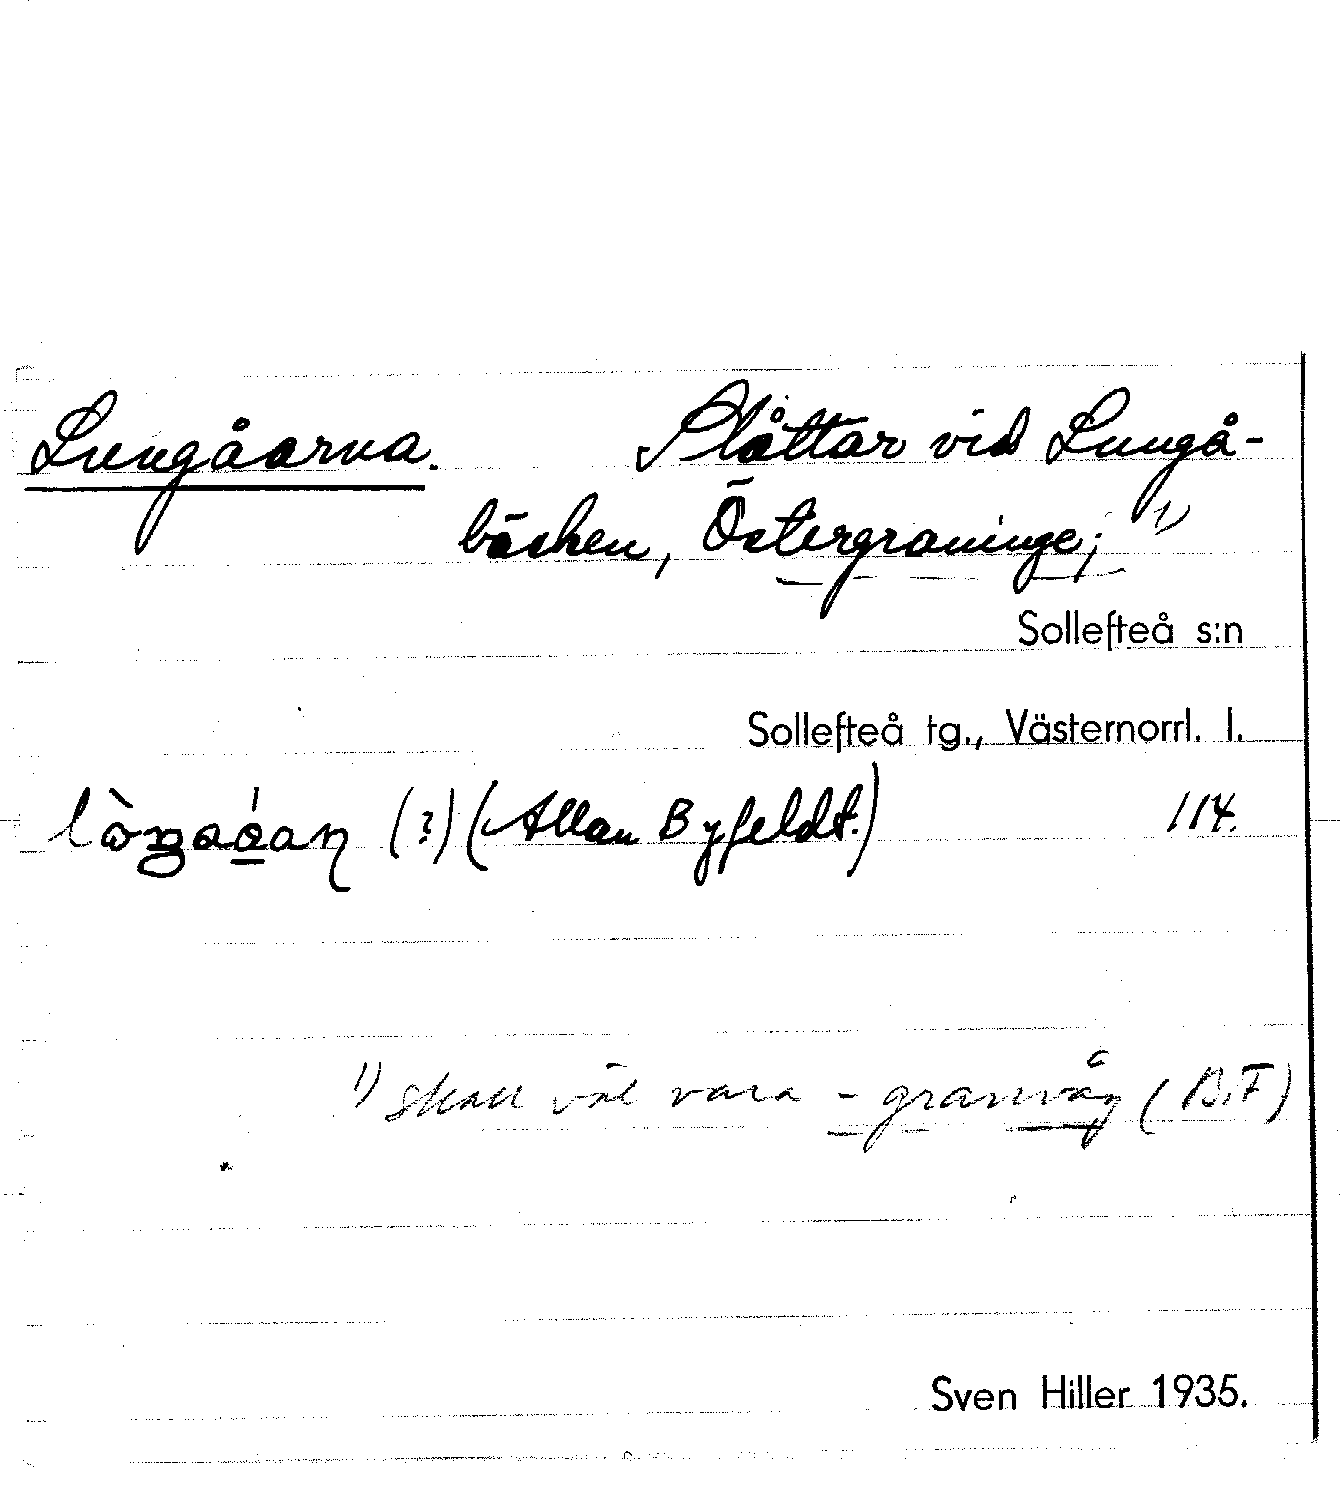 Lungåarna. Slåttar vid Lungå-
bäcken, Östergraninge; 1)
Sollefteå s:n
Sollefteå tg., Västernorrl. l.
(?) (Allan Byfeldt.) 114.
1) skall väl vara - granvåg (B.F)
Sven Hiller 1935.